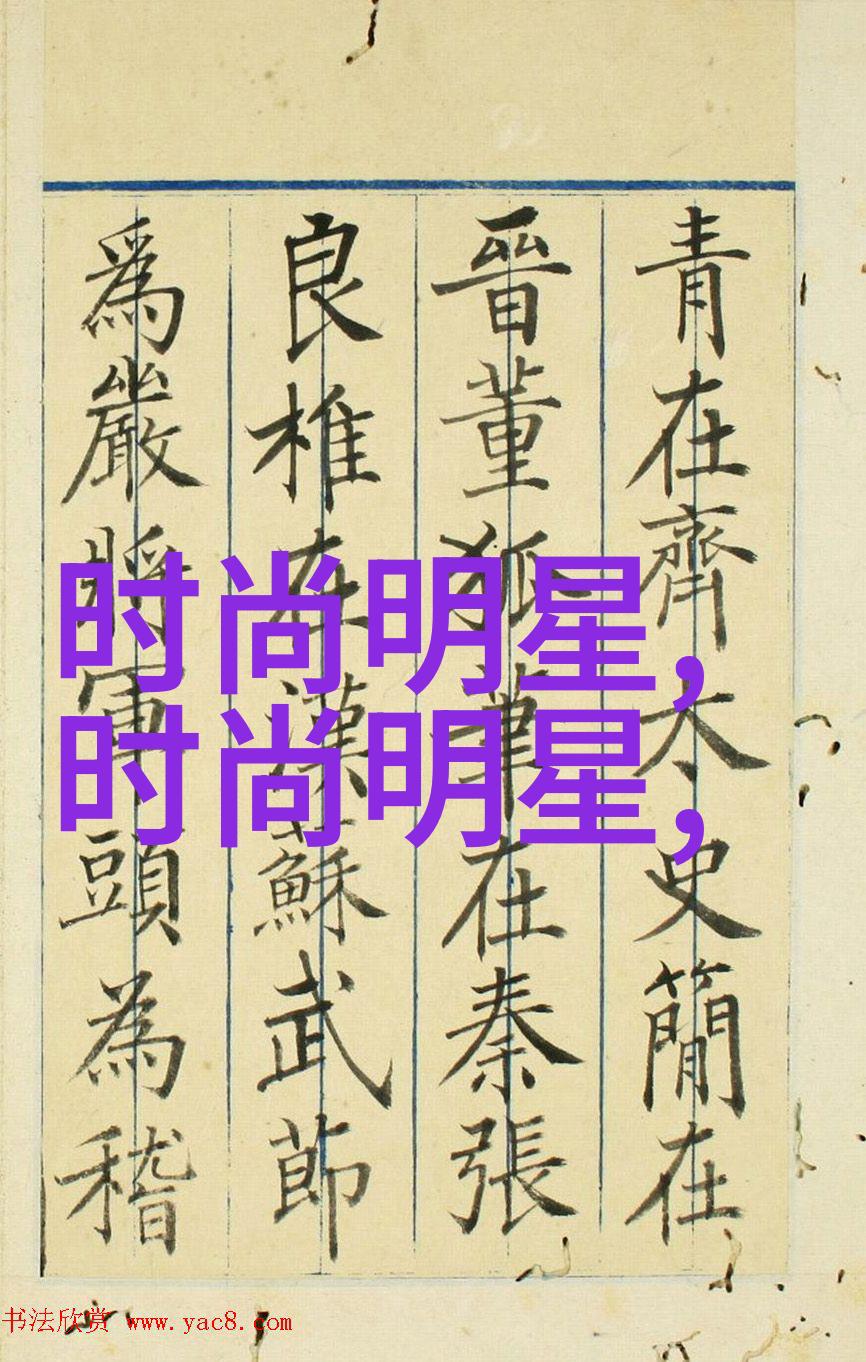 青在齊太史簡在
晉董狐筆在秦張
良椎在漢蘇武節
爲嚴將軍頭為稽
时尚明星,
时尚明星,
书法欣赏 www.yac8.com